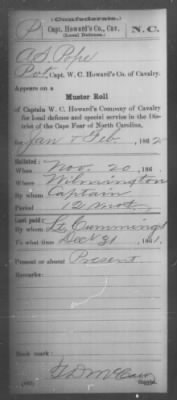 (Confederate.)
P Capt. Howard's Co., Cav. N. C.
(Local Defense.)
A S Pope
Pvt, Capt. W. C. Howard's Co. of Cavalry.
Appears on a
Muster Roll
of Captain W. C. Howard's Company of Cavalry
for local defense and special service in the Dis-
trict of the Cape Fear of North Carolina,
for Jan & Feb, 1862
Enlisted:
When Nov. 20, 186
Where Wilmington
By whom Captain
Period 12 Mos
Last paid:
By whom Lt. Cumming
To what time Dec 31, 1861.
Present or absent Present
Remarks:
Book mark:
Copyist.